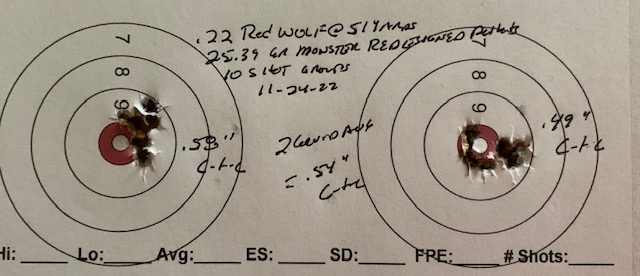 .22 Red WOLF @ 51 YARDS
25.39 GR MONSTER REDESIGNED Pellets
10 SHOT GROUPS
11-24-22
7
8
9
7
8
9
.58"
C-t-C
2 GROUP AVG
= .54"
C-t-C
.49"
C-t-C
Hi: Lo: Avg: ES: SD: FPE: # Shots: